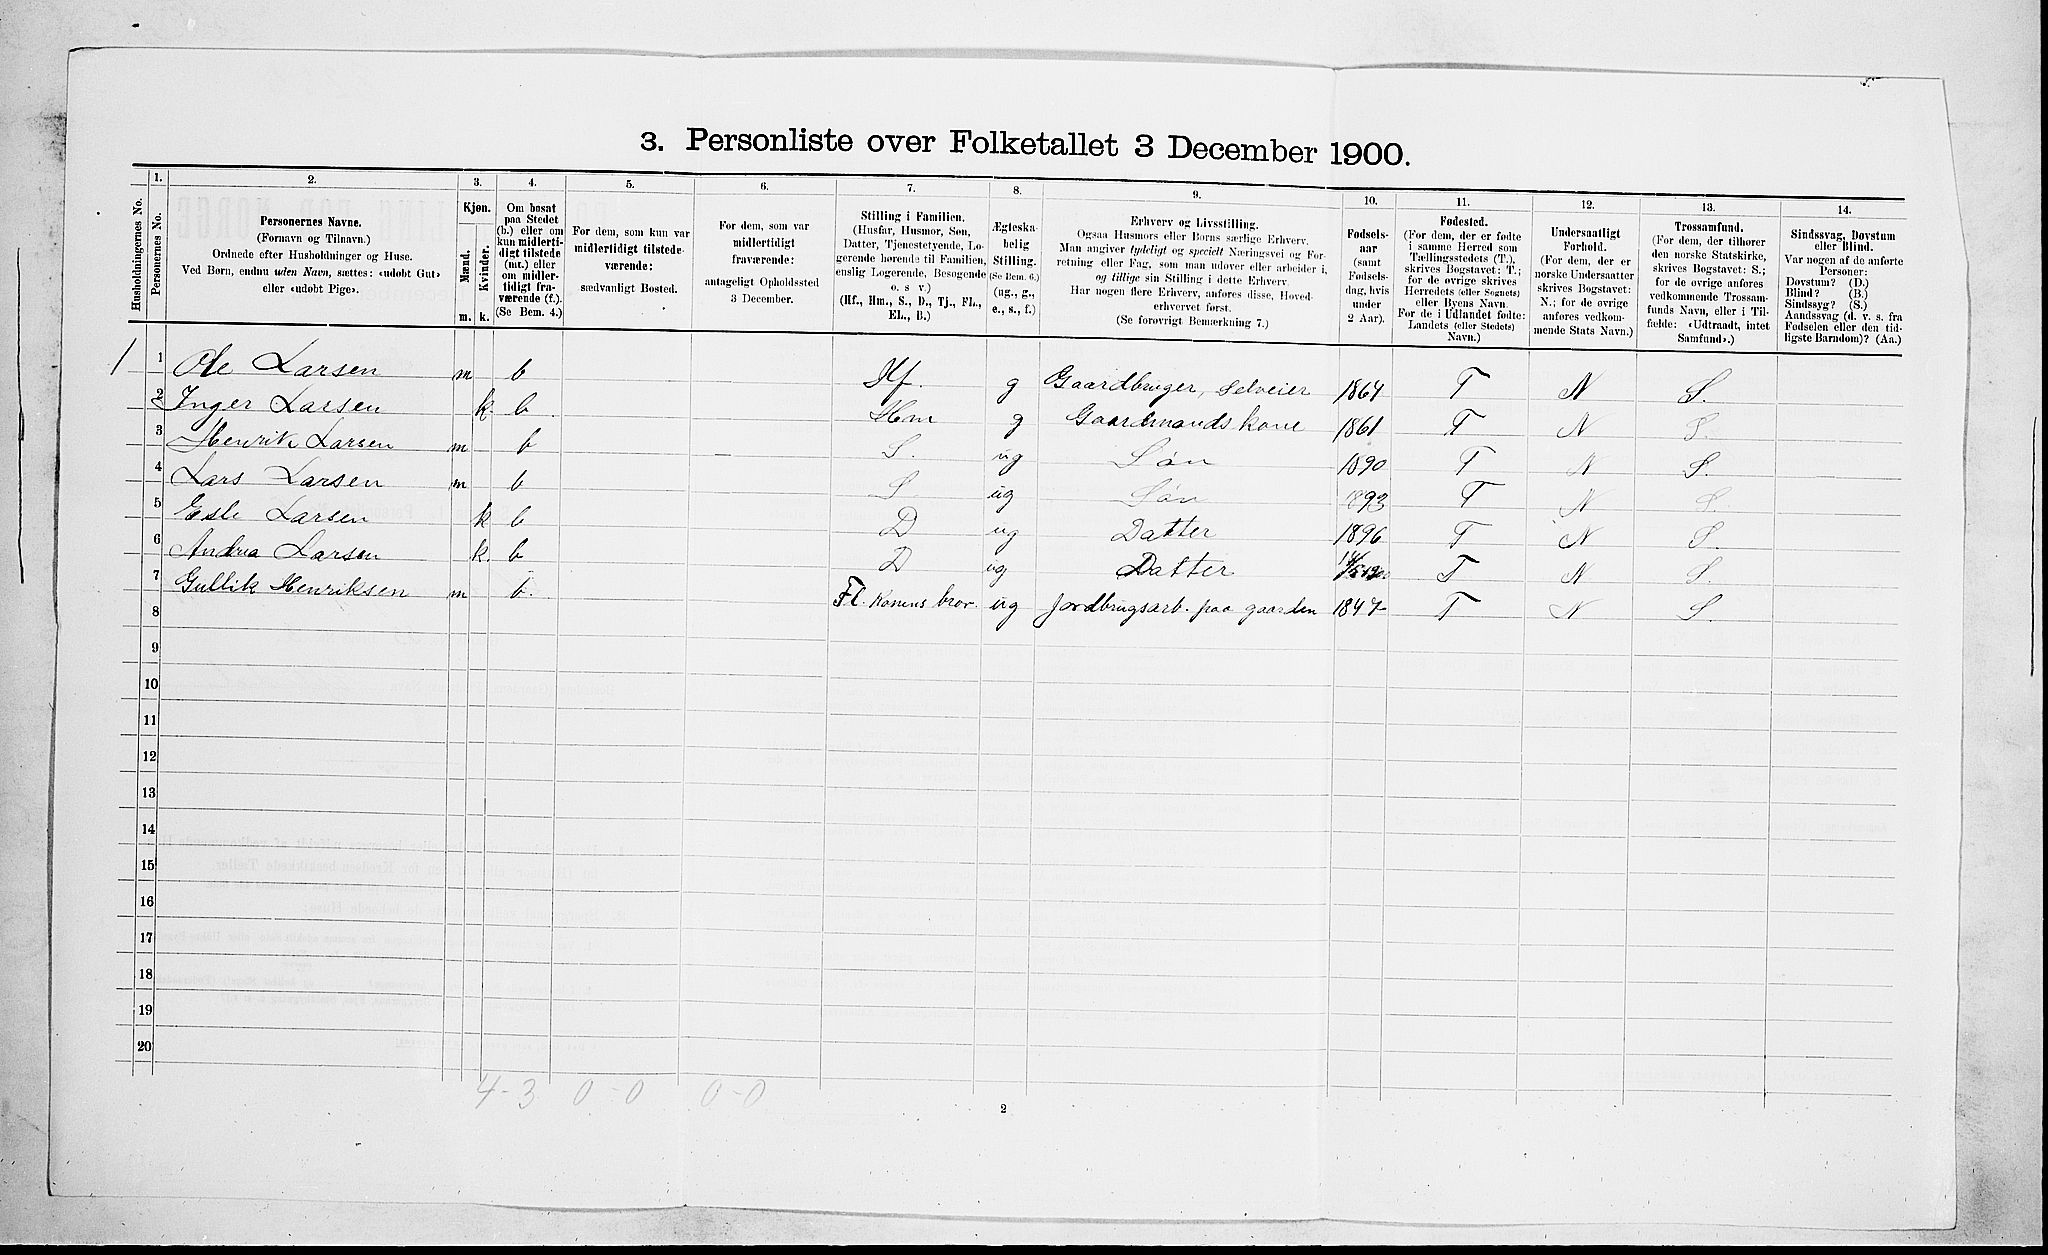 3. Personliste over Folketallet 3 December 1900.
Husholdningernes No.
1.
Personernes No.
2.
Personernes Navne.
(Fornavn og Tilnavn.)
Ordnede efter Husholdninger og Huse.
Ved Børn, endnu uden Navn, sættes: «udøbt Gut»
eller «udøbt Pige».
3.
Kjøn.
Mænd.
Kvinder.
m. k.
4.
Om bosat
paa Stedet
(b.) eller om
kun midlerti-
digt tilstede
(mt.) eller
om midler-
tidigt fra-
værende (f.).
(Se Bem. 4.)
5.
For dem, som kun var
midlertidigt tilstede-
værende:
sædvanligt Bosted.
6.
For dem, som var
midlertidigt
fraværende:
antageligt Opholdssted
3 December.
7.
Stilling i Familien.
(Husfar, Husmor, Søn,
Datter, Tjenestetyende, Lo-
gerende hørende til Familien,
enslig Logerende, Besøgende
o. s v.)
(Hf., Hm., S., D., Tj., FL.,
EL., B.)
8.
Ægteska-
belig
Stilling.
(Se Bem. 6.)
(ug., g.,
e., s., f.)
9.
Erhverv og Livsstilling.
Ogsaa Husmors eller Børns særlige Erhverv.
Man angiver tydeligt og specielt Næringsvei og For-
retning eller Fag, som man udøver eller arbeider i,
og tillige sin Stilling i dette Erhverv.
Har nogen flere Erhverv, anføres disse, Hoved-
erhvervet først.
(Se forøvrigt Bemærkning 7.)
10.
Fødsels-
aar
(samt
Fødsels-
dag, hvis
under
2 Aar).
11.
Fødested.
(For dem, der er fødte
i samme Herred som
Tællingsstedets (T.),
skrives Bogstavet: T.;
for de øvrige skrives
Herredets (eller Sognets)
eller Byens Navn.
For de i Udlandet fødte:
Landets (eller Stedets)
Navn.)
12.
Undersaatligt
Forhold.
(For dem, der er
norske Undersaatter
skrives Bogstavet:
N.; for de øvrige
anføres vedkom-
mende Stats Navn.)
13.
Trossamfund.
(For dem, der tilhører
den norske Statskirke,
skrives Bogstavet: S.;
for de øvrige anføres
vedkommende Trossam-
funds Navn, eller i Til-
fælde: «Udtraadt, intet
Samfund».)
14.
Sindssvag, Døvstum
eller Blind.
Var nogen af de anførte
Personer:
Døvstum? (D.)
Blind? (B.)
Sindssyg? (S.)
Aandssvag (d. v. s. fra
Fødselen eller den tid-
ligste Barndom)? (Aa.)
1 1 Ole Larsen m b Hf. g Gaardbruger, Selveier 1864 T N S.
2 Inger Larsen k. b Hm g Gaardmandskone 1861 T N S.
3 Henrik Larsen m b S. ug Søn 1890 T N S.
4 Lars Larsen m b S. ug Søn 1893 T N S.
5 Larsen k b D ug Datter 1896 T N S.
6 Andrea Larsen k. b D ug Datter T N S.
7 Gullik Henriksen m b. Fl. Konens bror. ug Jordbrugsarb. paa gaarden 1847 T N S.
8
9
10
11
12
13
14
15
16
17
18
19
20
4-3 0-0 0-0
2